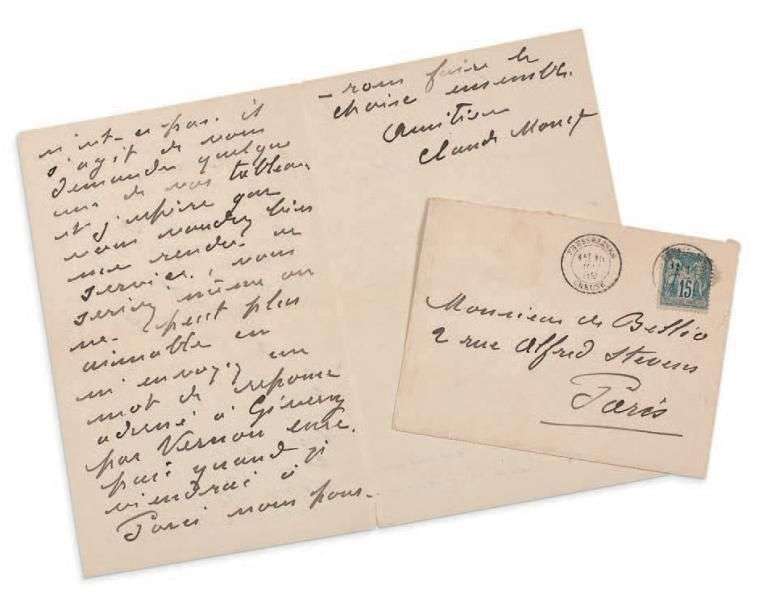 n'est-ce pas. il
s'agit de vous
demander quelque
uns de vos tableau
et j'espère que
vous voudrez bien
me rendre ce
service, vous
seriez même on
ne peut plus
aimable en
m'envoyez un
mot de reponse
adressé à Giverny
par Vernon Eure.
puis quand je
viendrai à
Paris nous pour-
-rons faire le
choix ensemble.
Amitiés
Claude Monet
CREUSE
15
Monsieur de Bellio
2 rue Alfred Stevens
Paris